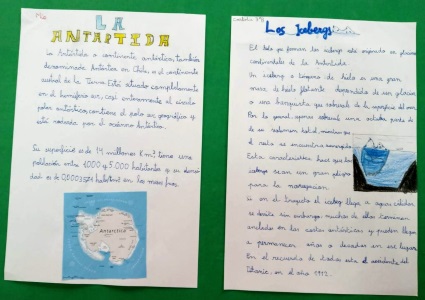 LA
ANTARTIDA
La Antártida o continente antártico, también
denominado Antártica en Chile, es el continente
austral de la Tierra. Está situado completamente
en el hemisferio sur, casi enteramente al círculo
polar antártico, contiene el polo sur geográfico y
está rodeado por el océano Antártico.
Su superficie es de 14 millones Km² tiene una
población entre 1000 y 5.000 habitantes y su
dad es de habitant en los mas fríos
Antarctica
Los Icebergs
El hielo que forman los icebergs está
continentales de la Antártida
Un iceberg o témpano de hielo es una gran
masa de hielo flotante desprendida de un glaciar
o una banquisa que sobresale de la superficie del mar.
Por lo general, apenas sobresale una octava parte de
de su volumen total, mientras que
el resto se encuentra sumergido
Esta característica hace que los
icebergs sean un gran peligro
para la navegación.
Si en el trayecto el iceberg llega a aguas cálidas
se derrite sin embargo, muchos de ellos terminan
anclados en las costas antárticas y pueden llegar
a permanecer años o décadas en ese lugar.
En el recuerdo de todos está el accidente del
Titanic, en el año 1912.